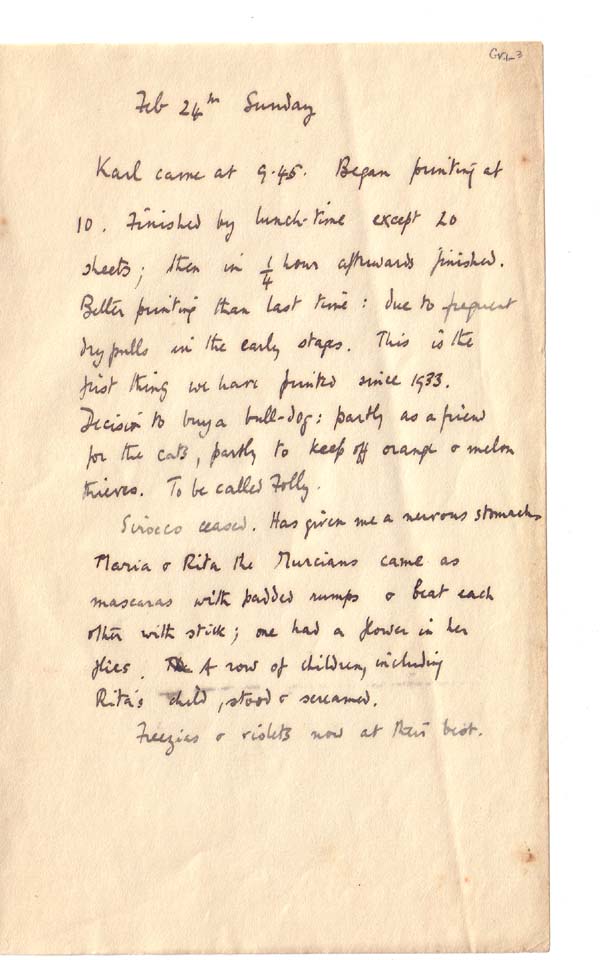 Gr1-3
Feb 24th Sunday
Karl came at 9.45. Began printing at
10. Finished by lunch-time except 20
sheets; then in 1/4 hour afterwards finished.
Better printing than last time: due to frequent
dry pulls in the early stages. This is the
first thing we have printed since 1933.
Decision to buy a bull-dog: partly as a friend
for the cats, partly to keep off orange & melon
thieves. To be called Folly.
Sirocco ceased. Has given me a nervous stomach.
Maria & Rita the Murcians came as
mascaras with padded rumps & beat each
other with stick; one had a flower in her
flies. A row of children, including
Rita's child, stood & screamed.
Freezias & violets now at their best.